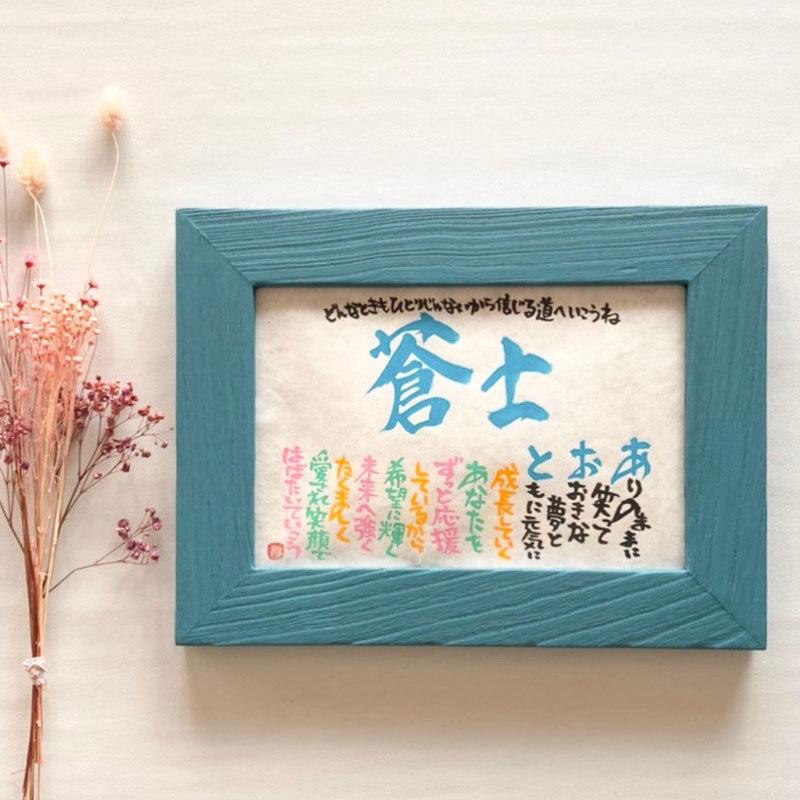 どんなときもひとりじんないから信じる道へいこうね
蒼士
ありのままに
笑って
おおきな
夢と
ともに元気に
成長していく
あなたを
ずっと応援
しているから
希望に輝く
未来へ強く
たくましく
愛され笑顔で
はばたいていこう